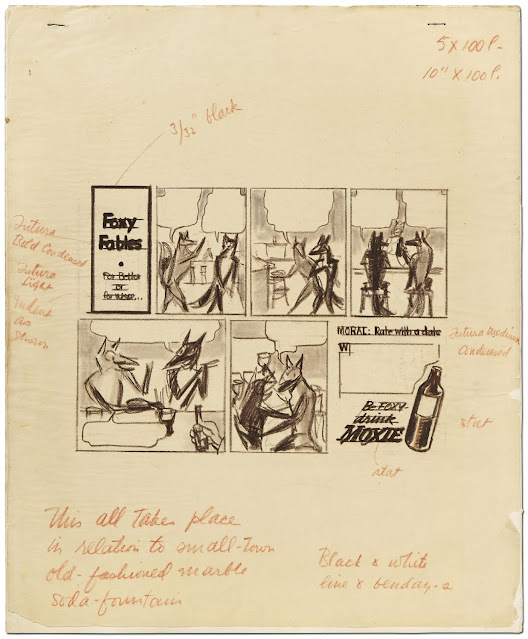 5 X 100 l.
10" X 100 l.
3/32" black
Foxy
Fables
For Better
or
for worse...
Futura
Bold Condensed
Futura
Light
Indent
as
shown
MORAL: Rate with a date
W
Futura Medium
Condensed
Be FOXY-
drink
MOXIE
stat
stat
This all takes place
in relation to small-town
old-fashioned marble
soda-fountain
Black & white
line & benday-2